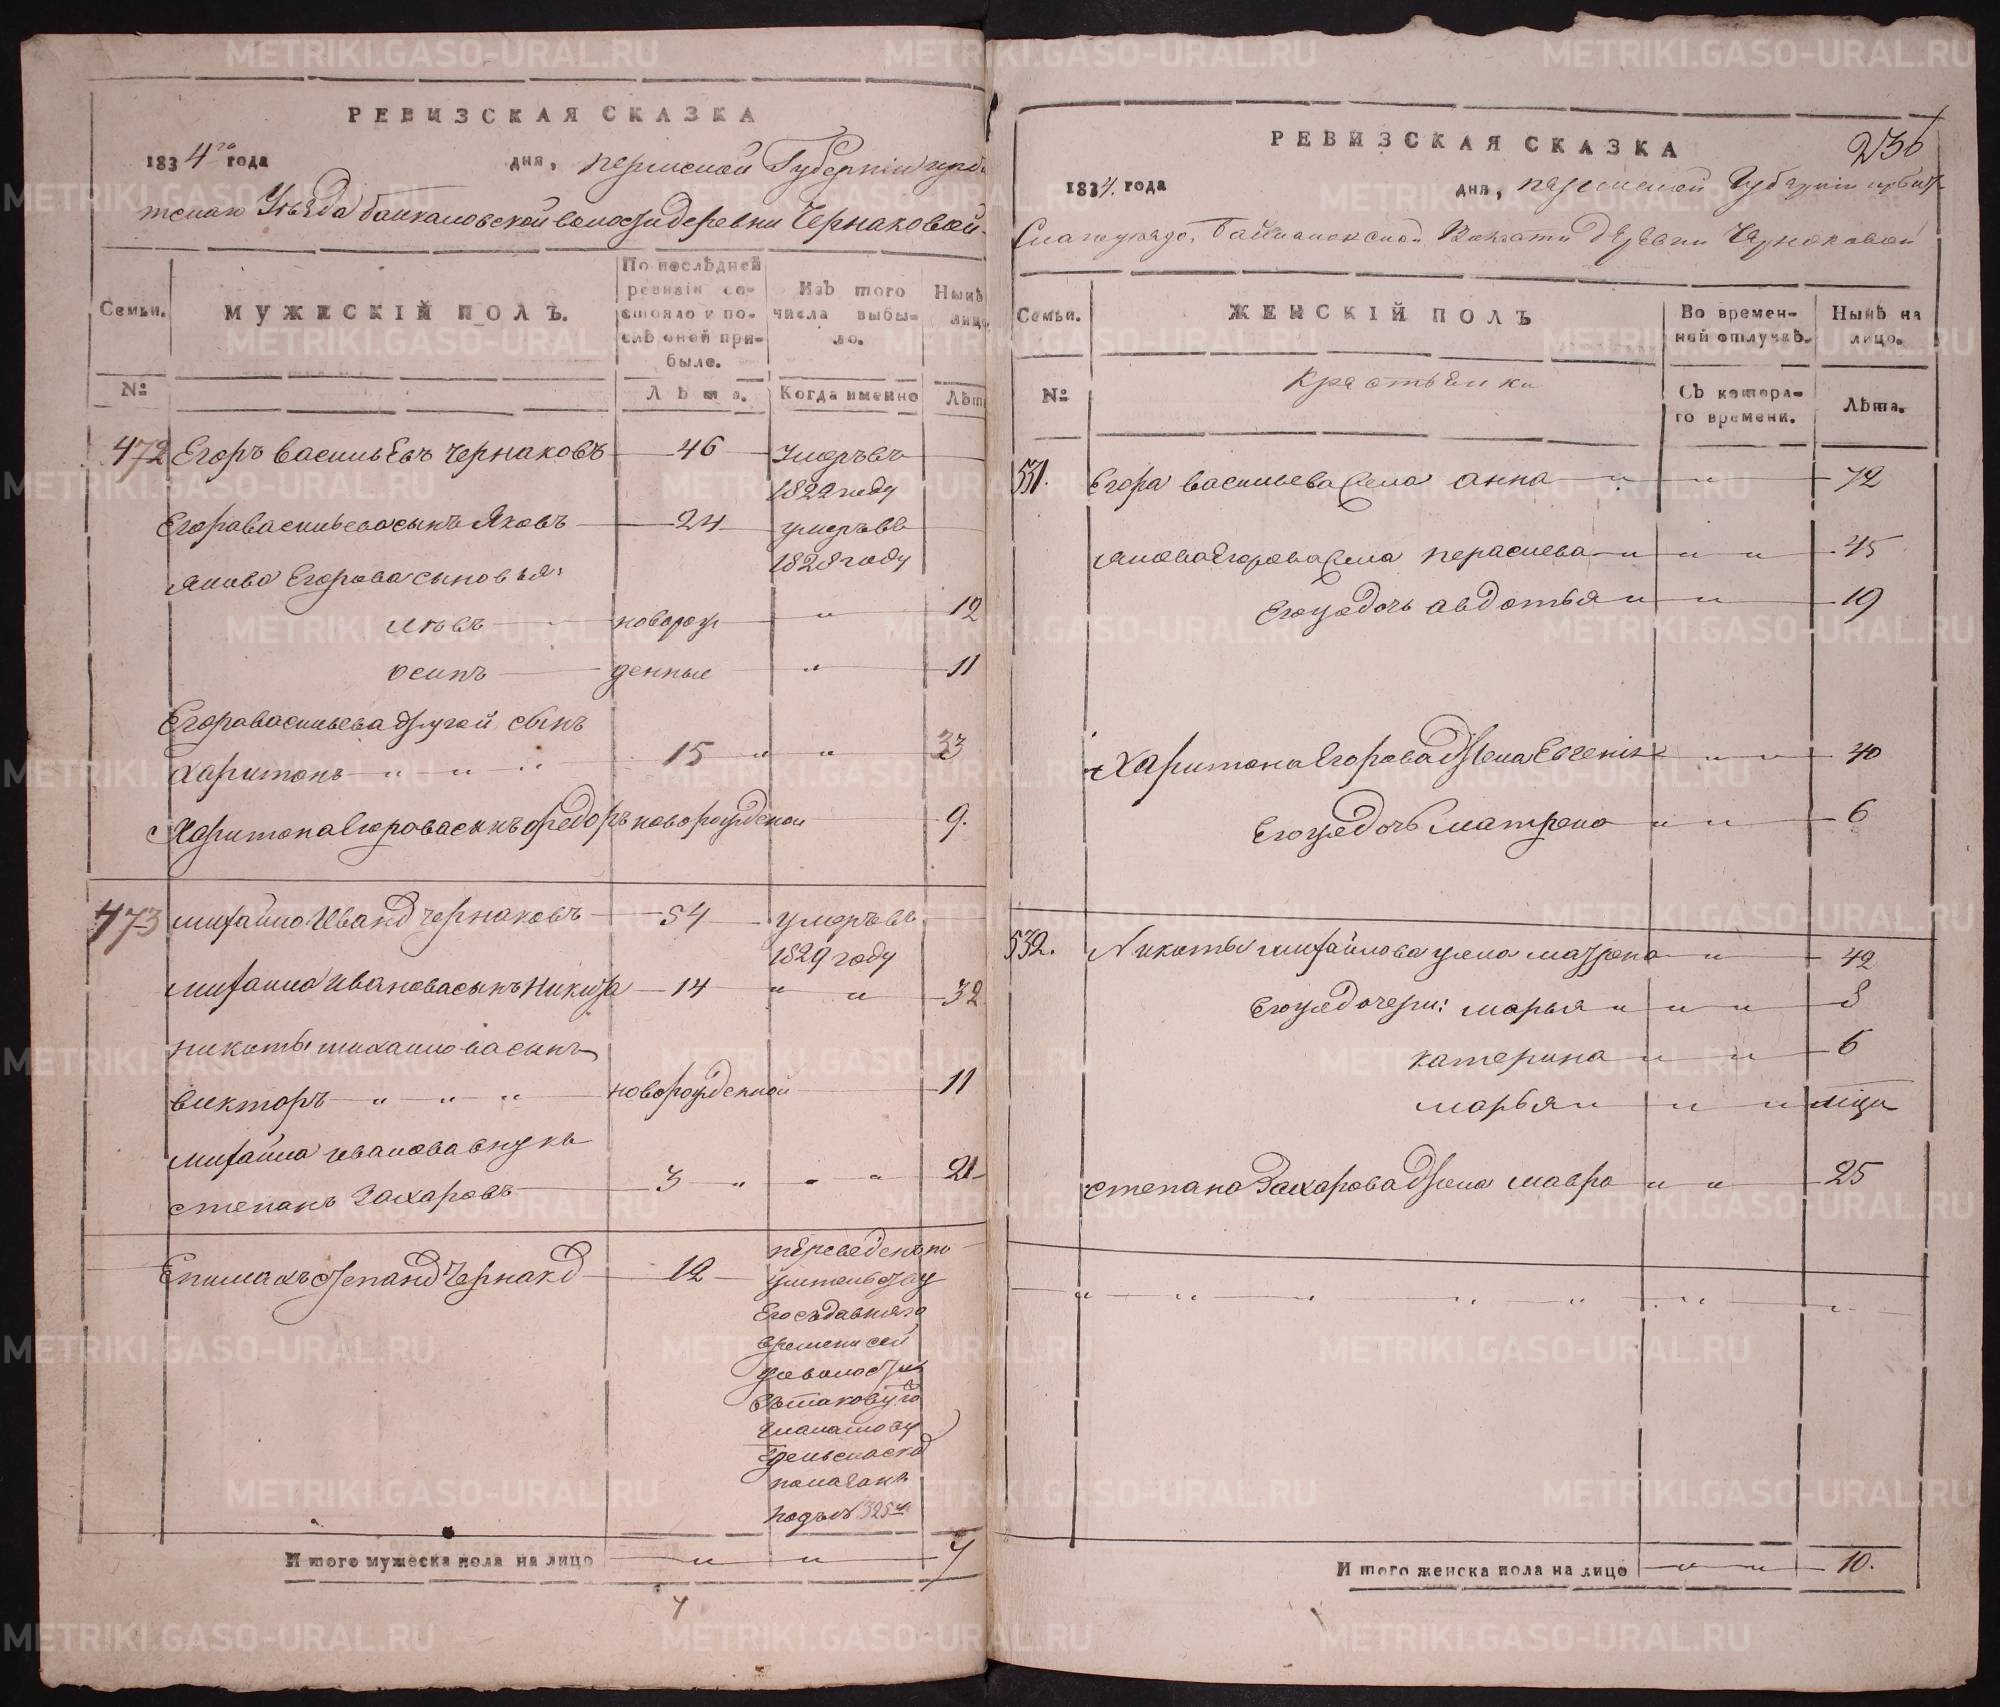 РЕВИЗСКАЯ СКАЗКА
1834го года дня, пермской Губернiи ирби
тскаго Уѣзда Байкаловской волости деревни Чернаковой
Семьи.
МУЖЕСКIЙ ПОЛЪ.
По послѣдней
ревизiи со-
стояло и по-
слѣ оной при-
было.
Изъ того
числа выбы-
ло.
Нынѣ
лицо
№
Лѣта.
Когда именно
Лѣт
472 Егоръ васильевъ Чернаковъ 46 Умеръ въ
1822 году
Егора васильева сынъ Яковъ 24 умеръ въ
1828 году
якова Егорова сыновья:
левъ новорож 12
осипъ денные 11
Егора васильева другой сынъ
харитонъ 15 33
Харитона Егорова сынъ федоръ новорожденой 9.
473 михайло Иванов чернаковъ 54 умеръ въ
1829 году
михаила ивановa сынъ никита 14 32
никиты михаилова сынъ
викторъ новорожденной 11
михаила иванова внукъ
степанъ Захаровъ 3 21
Епимахъ степанов Чернаков 12 переведенъ по
жительству
Его съ давняго
времени сей
же волости
въ таковую
подъ № 325
И того мужеска пола на лицо 7
7
РЕВИЗСКАЯ СКАЗКА
236
1834. года дня, пермской Губернiи ирбит
скаго уезда, Байкаловской Волости деревни Чернаковой
Семьи.
ЖЕНСКIЙ ПОЛЪ
Во времен-
ной отлучкѣ.
Нынѣ на
лицо.
№
Крестьянки
Съ котора-
го времени.
Лѣта.
531. Егора васильева жена анна 72
якова Егорова жена парасковa 45
Его же дочь авдотья 19
Харитона Егорова жена Евгенiя 40
Его же дочь матрена 6
532. Никиты михайлова жена матрена 42
Его же дочери: марья 8
катерина 6
марья
степана Захарова жена мавра 25
И того женска пола на лицо 10.
METRIKI.GASO-URAL.RU